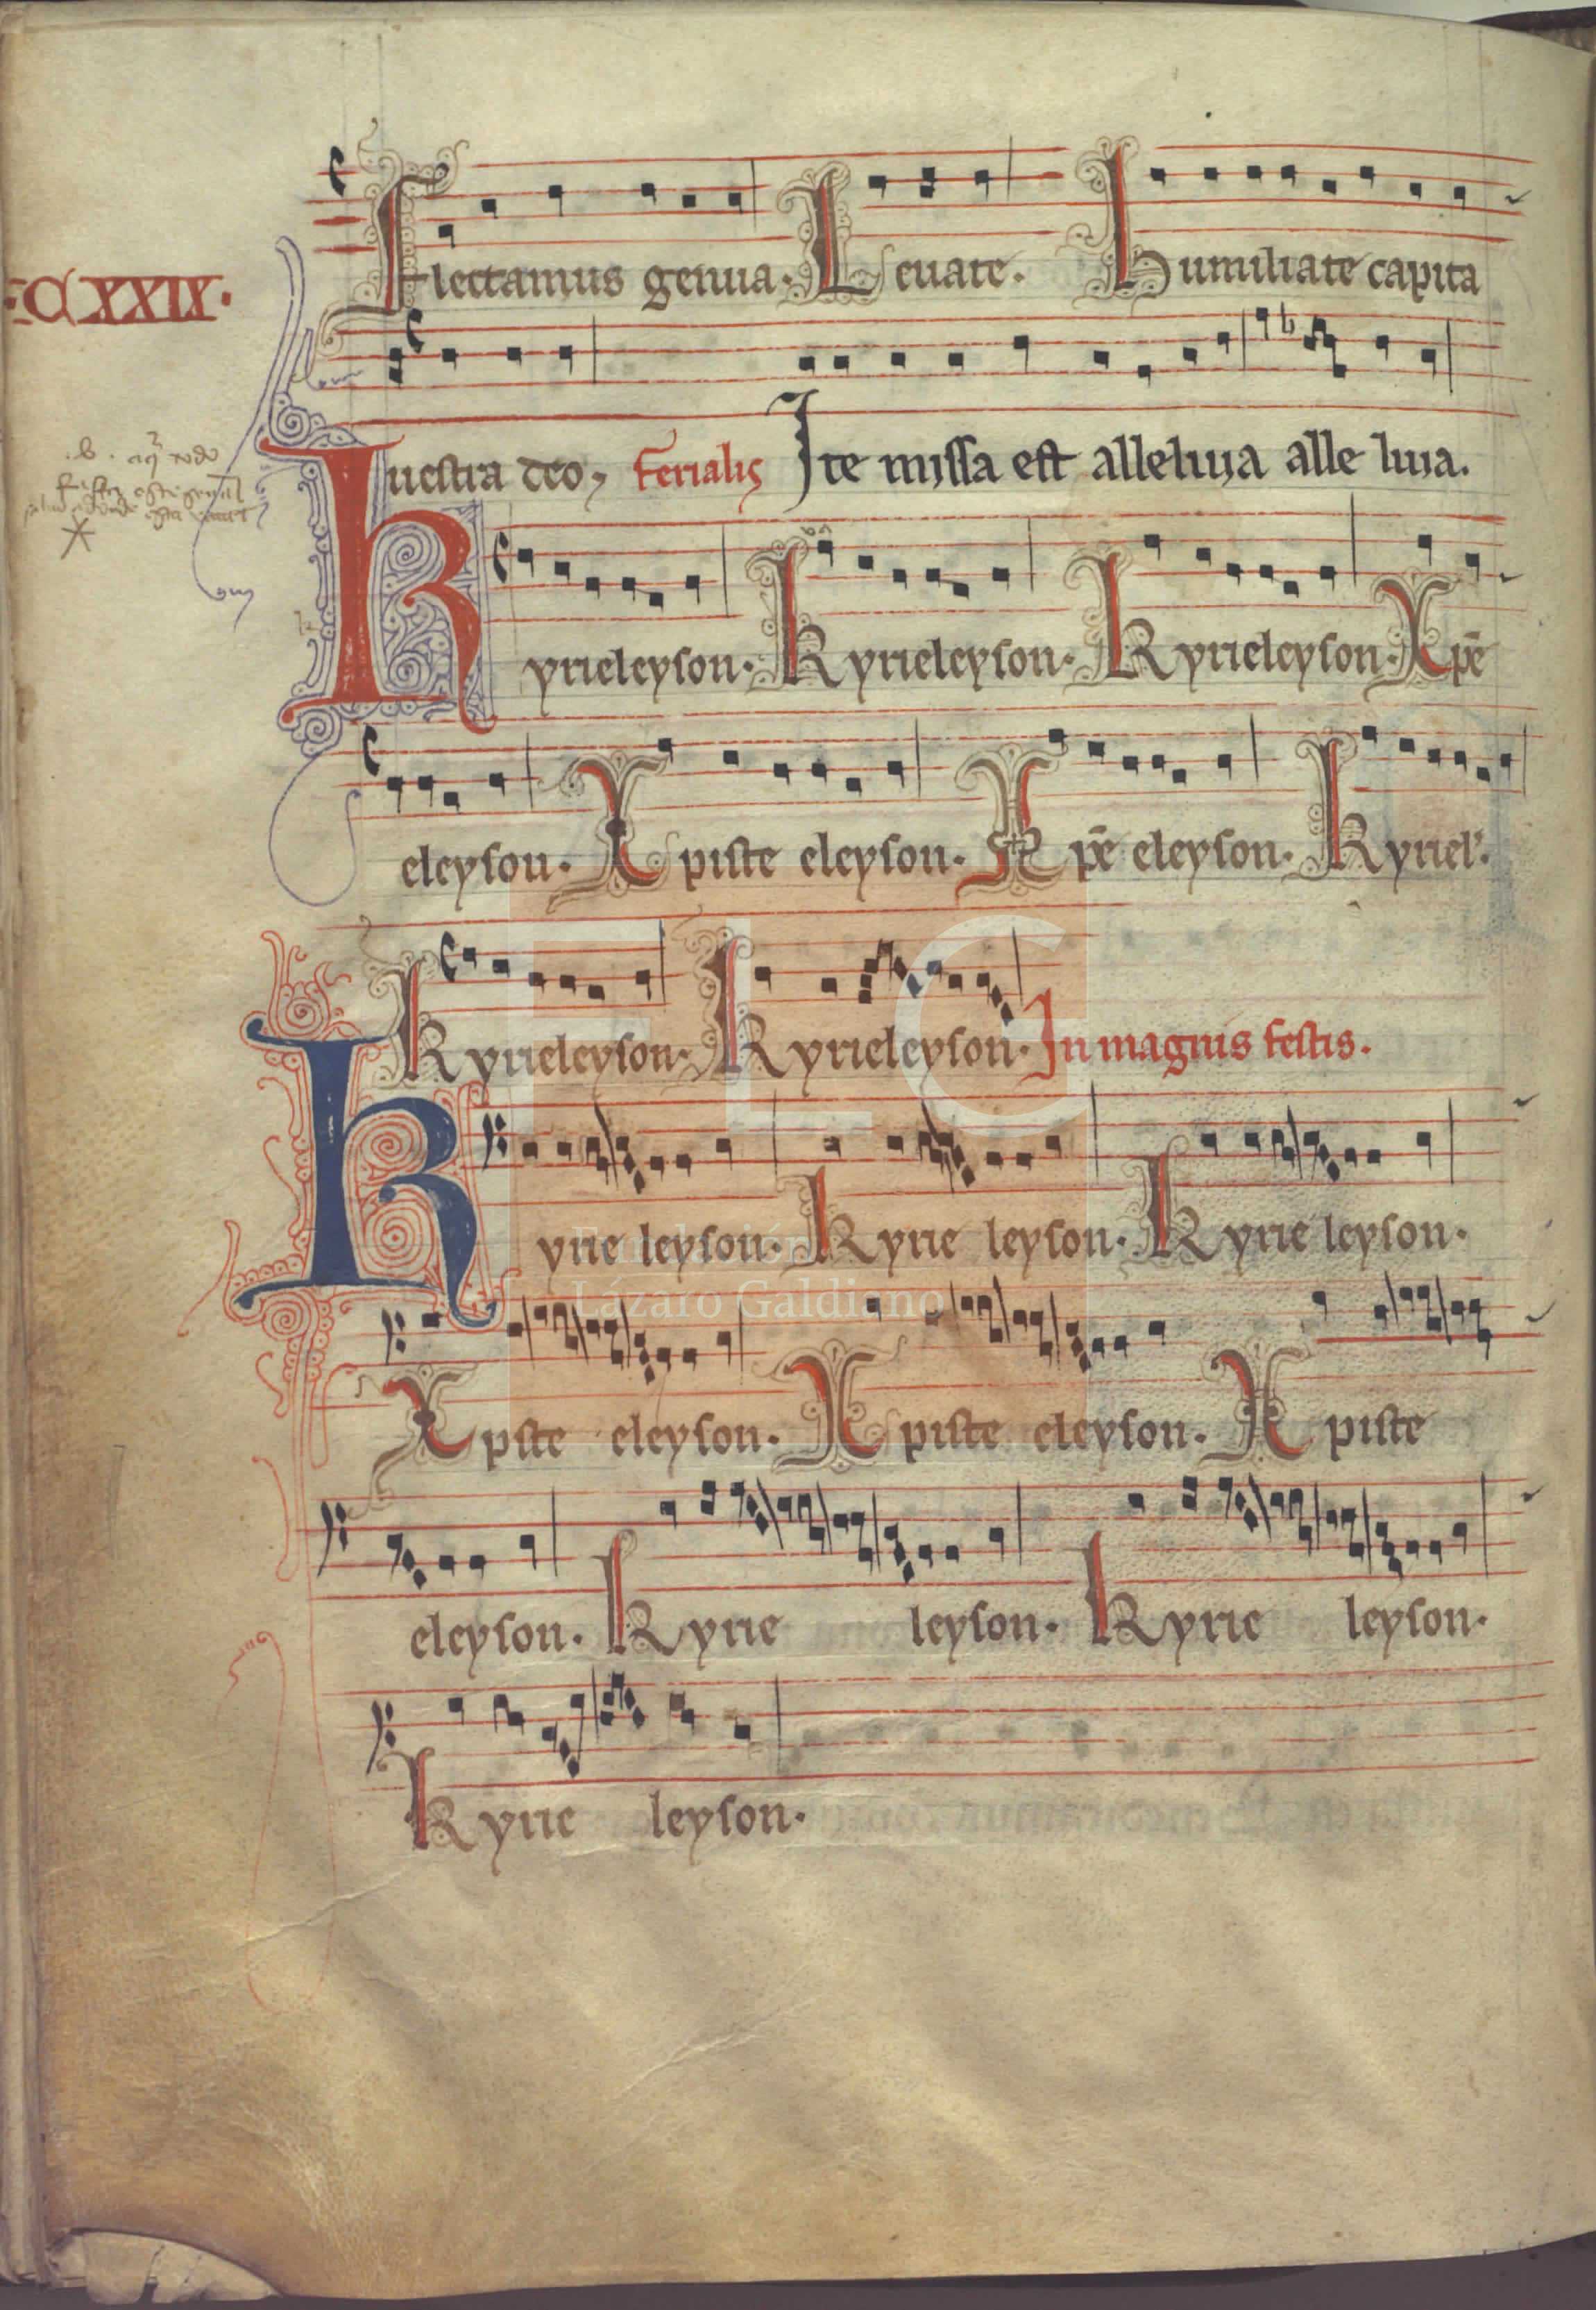 Flectamus genua. Leuate. Humiliate capita
·CXXIX·
uestra deo, ferialis Ite missa est alleluya alle luia.
Kyrieleyson. Kyrieleyson. Kyrieleyson. Xpē
eleyson. Xpiste eleyson. Xpē eleyson. Kyriel'.
Kyrieleyson. Kyrieleyson. In magnis festis.
Kyrie leyson. Kyrie leyson. Kyrie leyson.
FLG
Fundación
Lázaro Galdiano
Xpiste eleyson. Xpiste eleyson. Xpiste
eleyson. Kyrie leyson. Kyrie leyson.
Kyrie leyson.